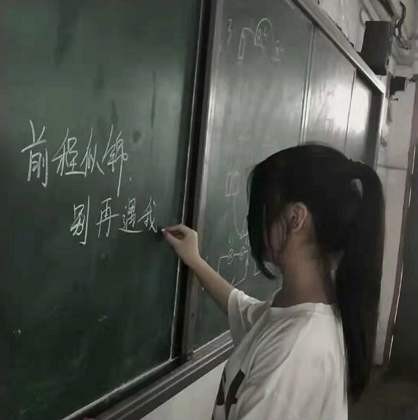 前程似锦.
别再遇我